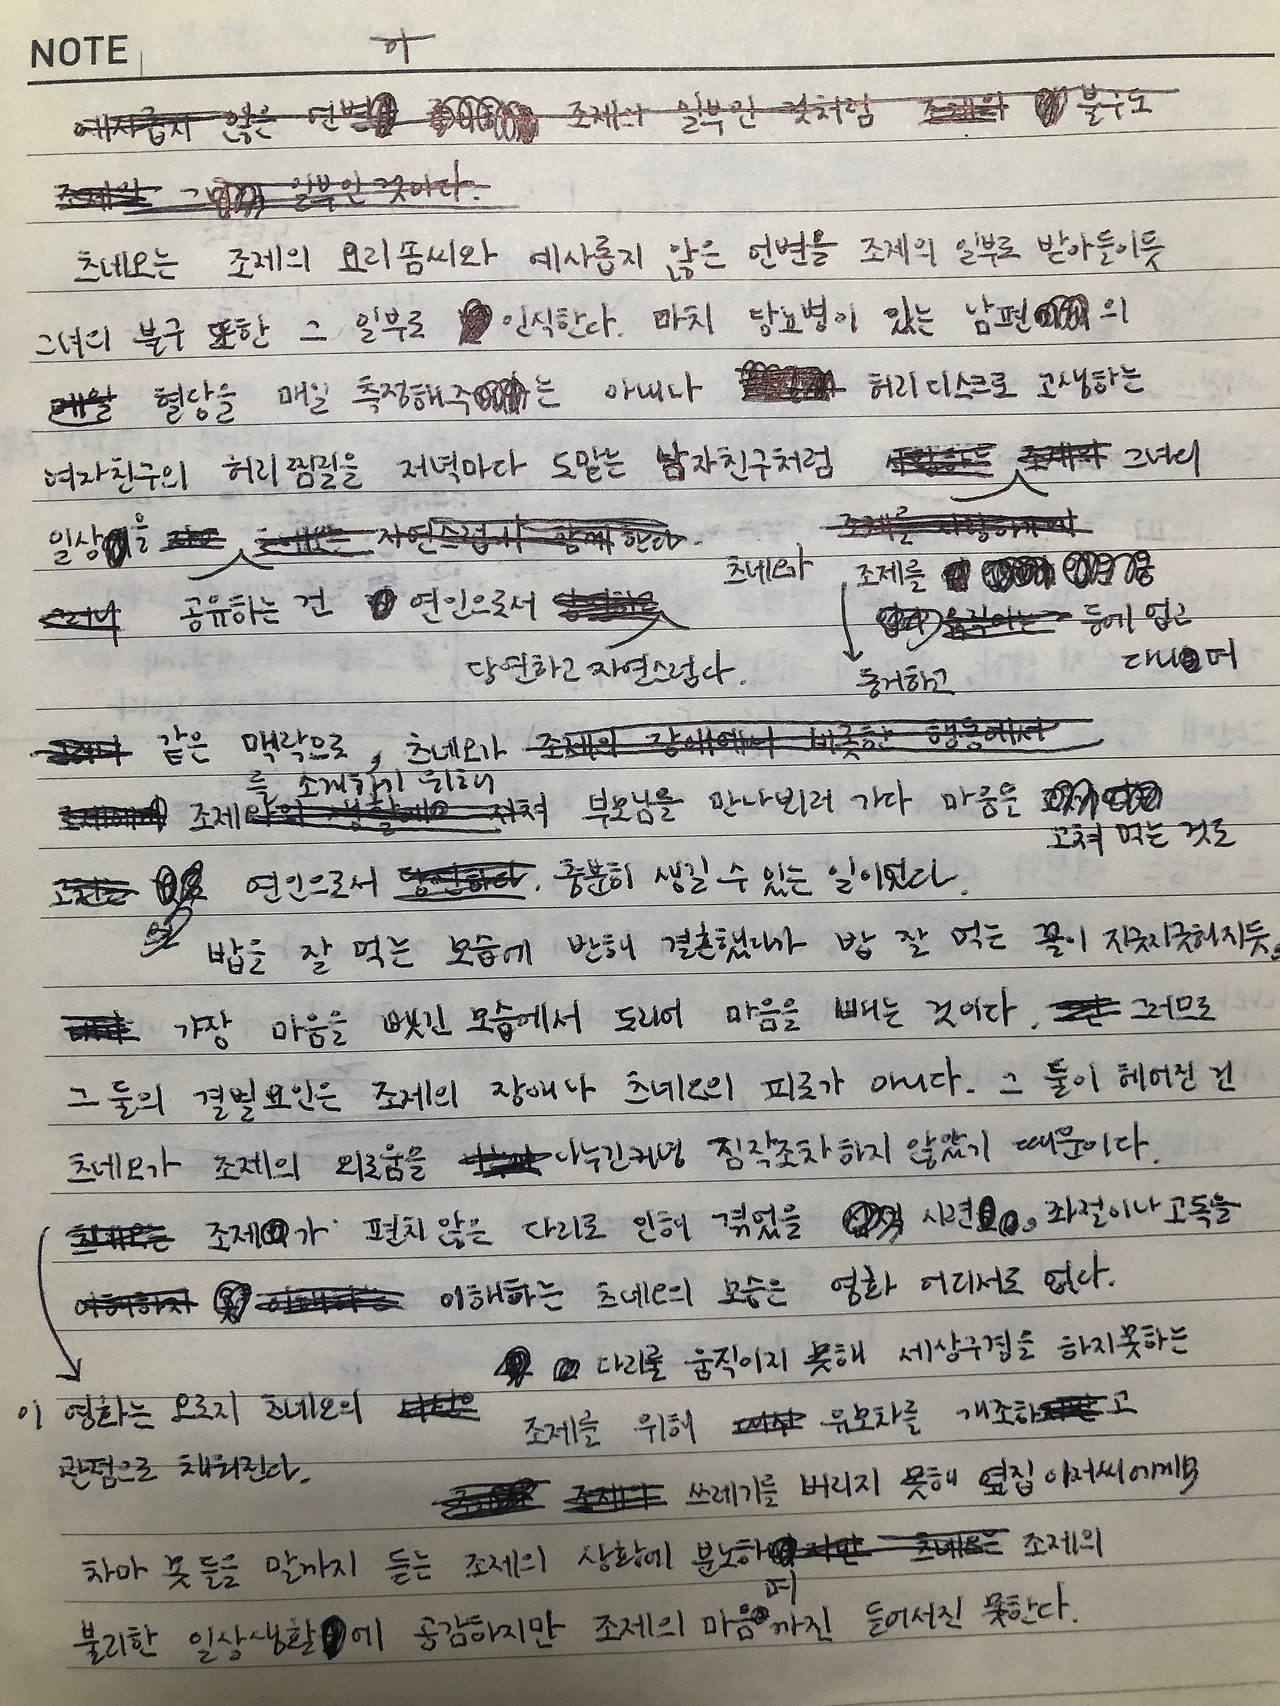 NOTE
예사롭지 않은 언변 조제의 일부인 것처럼 조제의 불구도
조제의 그 일부인 것이다.
츠네오는 조제의 요리솜씨와 예사롭지 않은 언변을 조제의 일부로 받아들이듯
그녀의 불구 또한 그 일부로 인식한다. 마치 당뇨병이 있는 남편의
매일 혈당을 매일 측정해주는 아내나 허리디스크로 고생하는
여자친구의 허리찜질을 저녁마다 도맡는 남자친구처럼 그녀의
일상을 츠네오는 자연스럽게 함께 한다.
조제를 사랑하게
츠네오가 조제를
공유하는 건 연인으로서 등에 업고
당연하고 자연스럽다. 다니며
동거하고
같은 맥락으로, 츠네오가 조제의 장애에서 비롯한 행동에서
를 소개하기 위해
조제의 생활에 지쳐 부모님을 만나뵈러 가다 마음은
고쳐 먹는 것도
연인으로서 당연하다. 충분히 생길 수 있는 일이었다.
밥을 잘 먹는 모습에 반해 결혼했다가 밥 잘 먹는 꼴이 지긋지긋해지듯,
가장 마음을 뺏긴 모습에서 도리어 마음을 빼는 것이다. 그러므로
그 둘의 결별요인은 조제의 장애나 츠네오의 피로가 아니다. 그 둘이 헤어진 건
츠네오가 조제의 외로움을 나누긴커녕 짐작조차 하지 않았기 때문이다.
츠네오는 조제가 편치 않은 다리로 인해 겪었을 시련, 좌절이나 고독을
이해하는 이해하는 츠네오의 모습은 영화 어디서도 없다.
다리를 움직이지 못해 세상구경을 하지못하는
이 영화는 오로지 츠네오의
조제를 위해 유모차를 개조하고
관점으로 채워진다.
쓰레기를 버리지 못해 옆집 아저씨에게
차마 못 들을 말까지 듣는 조제의 상황에 분노하지만 츠네오는 조제의
며
불리한 일상생활에 공감하지만 조제의 마음까진 들어서진 못한다.